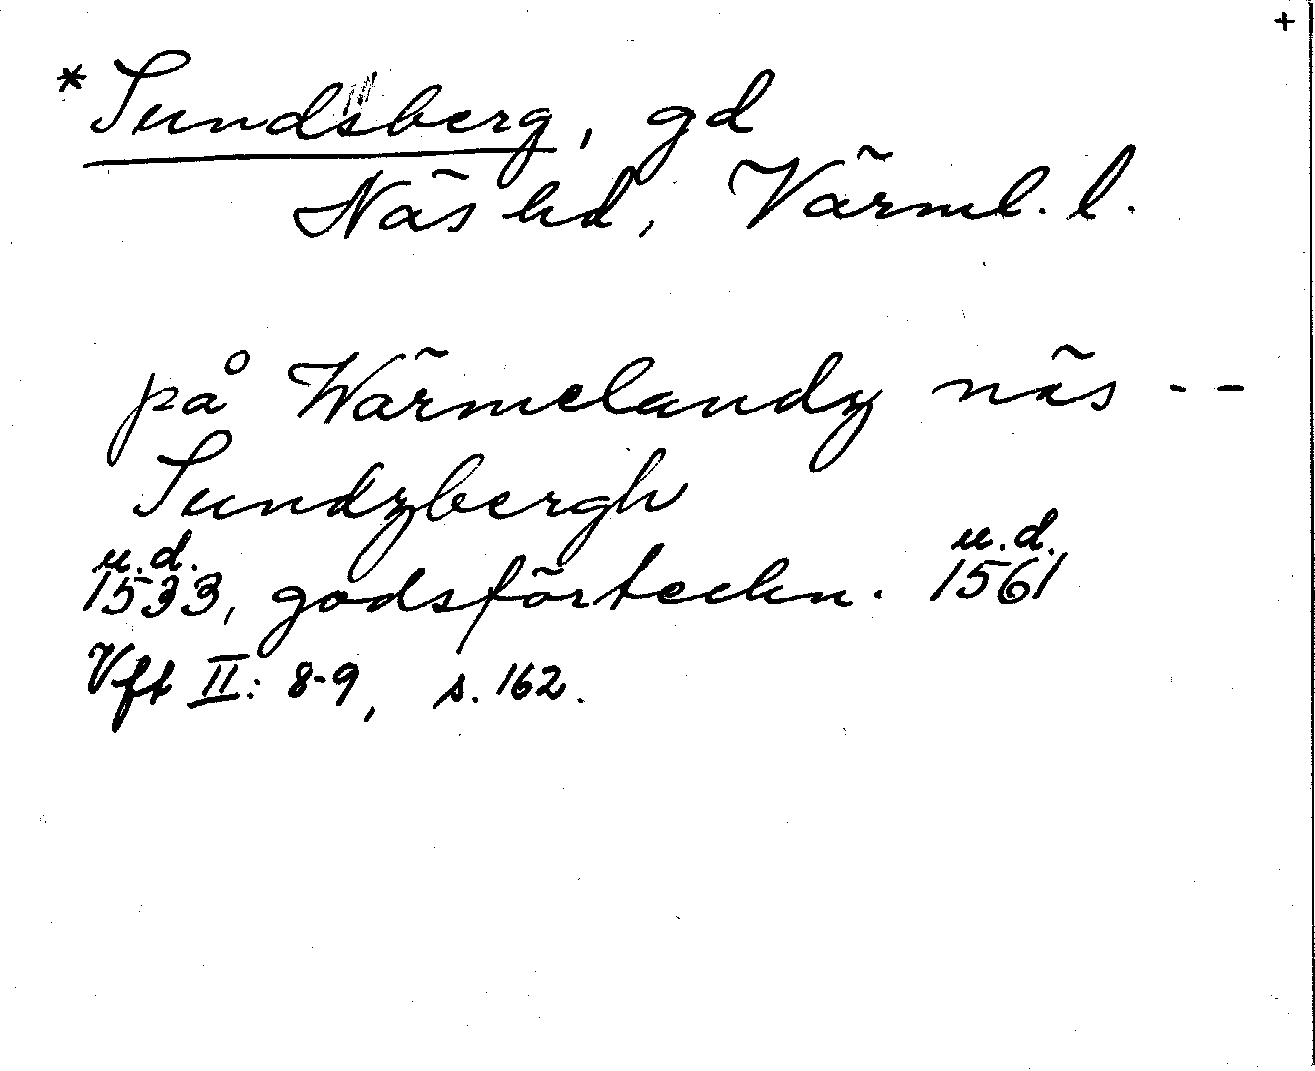 +
* Sundsberg, gd
Näs hd, Värml. l.
på Wärmelandz näs - -
Sundzbergh
u.d. u.d.
1533, godsförteckn. 1561
Vft II: 8-9, s. 162.